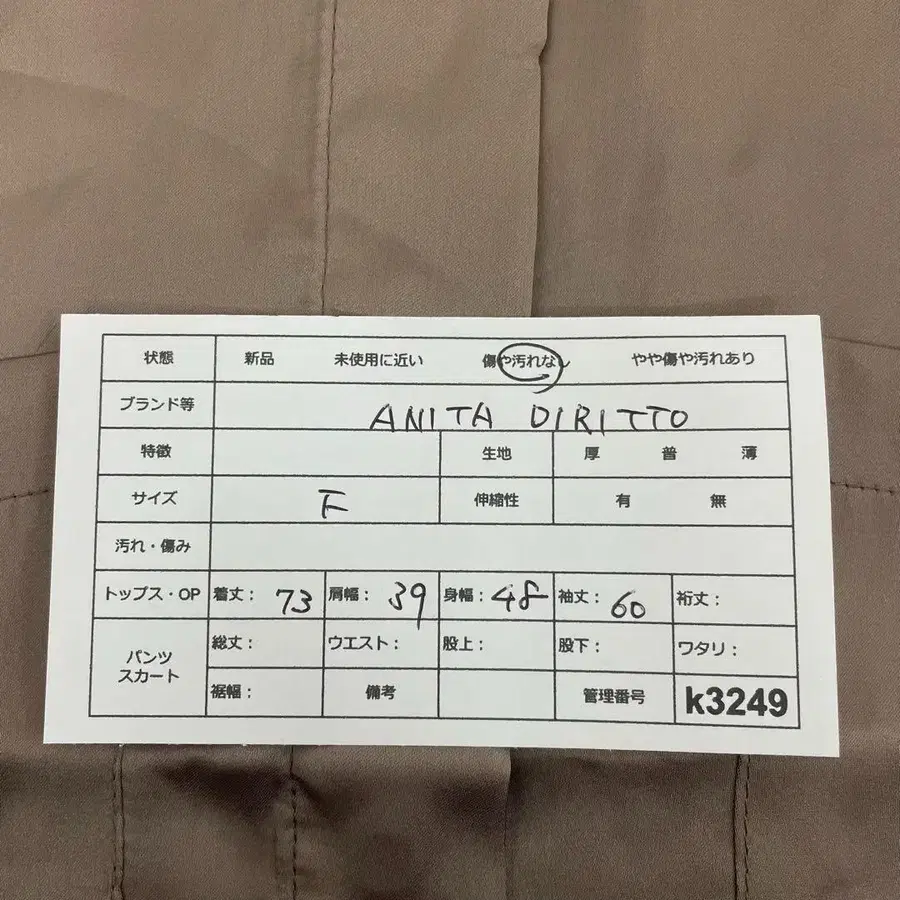 状態 新品 未使用に近い 傷や汚れなし やや傷や汚れあり
ブランド等 ANITA DIRITTO
特徴 生地 厚 普 薄
サイズ F 伸縮性 有 無
汚れ・傷み
トップス・OP 着丈： 73 肩幅： 39 身幅： 48 袖丈： 60 裄丈：
パンツ スカート 総丈： ウエスト： 股上： 股下： ワタリ：
裾幅： 備考 管理番号 k3249